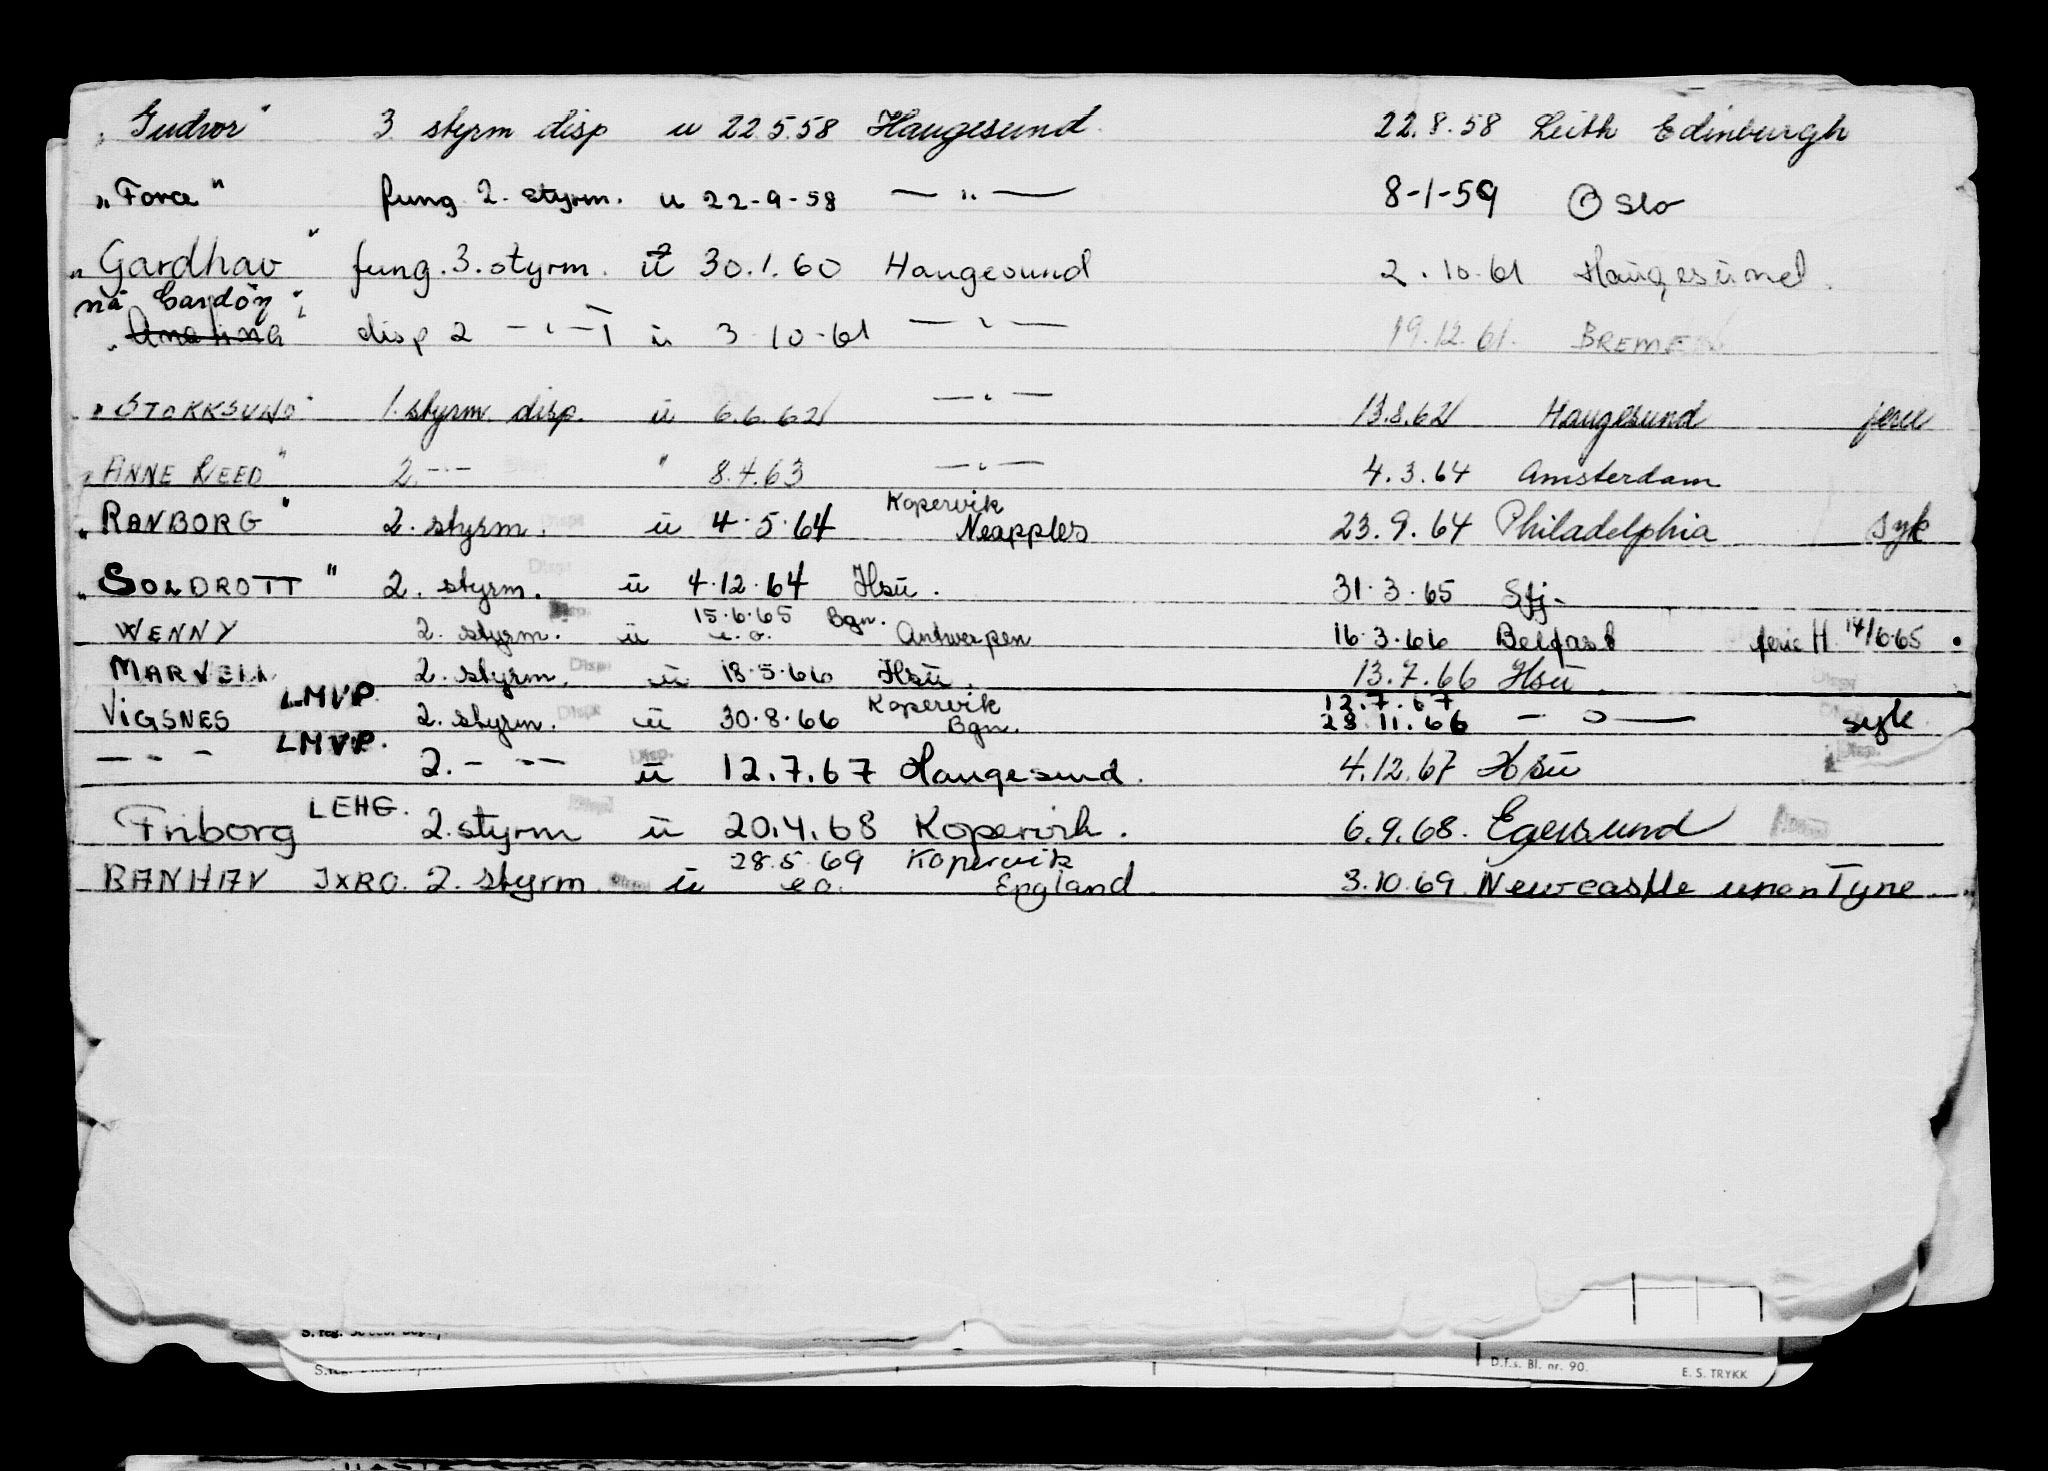 „ Gudvor " 3 styrm disp u 22.5.58 Haugesund. 22.8.58 Leith Edinburgh
„ Force " fung 2. styrm. u 22-9-58 — " — 8-1-59 Oslo
„ Gardhav " fung. 3. styrm. ū 30.1.60 Haugesund 2.10.61 Haugesund.
nå
„ disp 2 — " — ū 3-10-61 — " — 19.12.61. BREMEN
„ STOKKSUND " 1. styrm. disp. ū 6.6.62 — " — 13.8.62 Haugesund ferie
„ ANNE REED " 2. - " - " 8.4.63 — " — 4.3.64 Amsterdam
Kopervik
„ RANBORG " 2. styrm. Disp. ū 4.5.64 Neapples 23.9.64 Philadelphia syk
„ SOLDROTT " 2. styrm. Disp. ū 4.12.64 Hsū. 31.3.65 Sfj-
15.6.65 Bgn.
WENNY 2. styrm. ū e.o. Antwerpen 16.3.66 Belfast ferie H. 14/6.65
MARVELL 2. styrm. Disp. ū 18.5.66 Hsū. 13.7.66 Hsū.
LMVP. Kopervik 12.7.67
VIGSNES 2. styrm. Disp. ū 30.8.66 Bgn. 23.11.66 — " — syk
— " — LMVP. 2. — " — Disp. ū 12.7.67 Haugesund. 4.12.67 Hsū Disp.
Friborg LEHG. 2. styrm ū 20.4.68 Kopervik. 6.9.68. Egersund
28.5.69 Kopervik
RANHAV JXRO. 2. styrm. ū e.o. England. 3.10.69 Newcastle upon Tyne.
D.f.s. Bl. nr. 90.
E. S. TRYKK